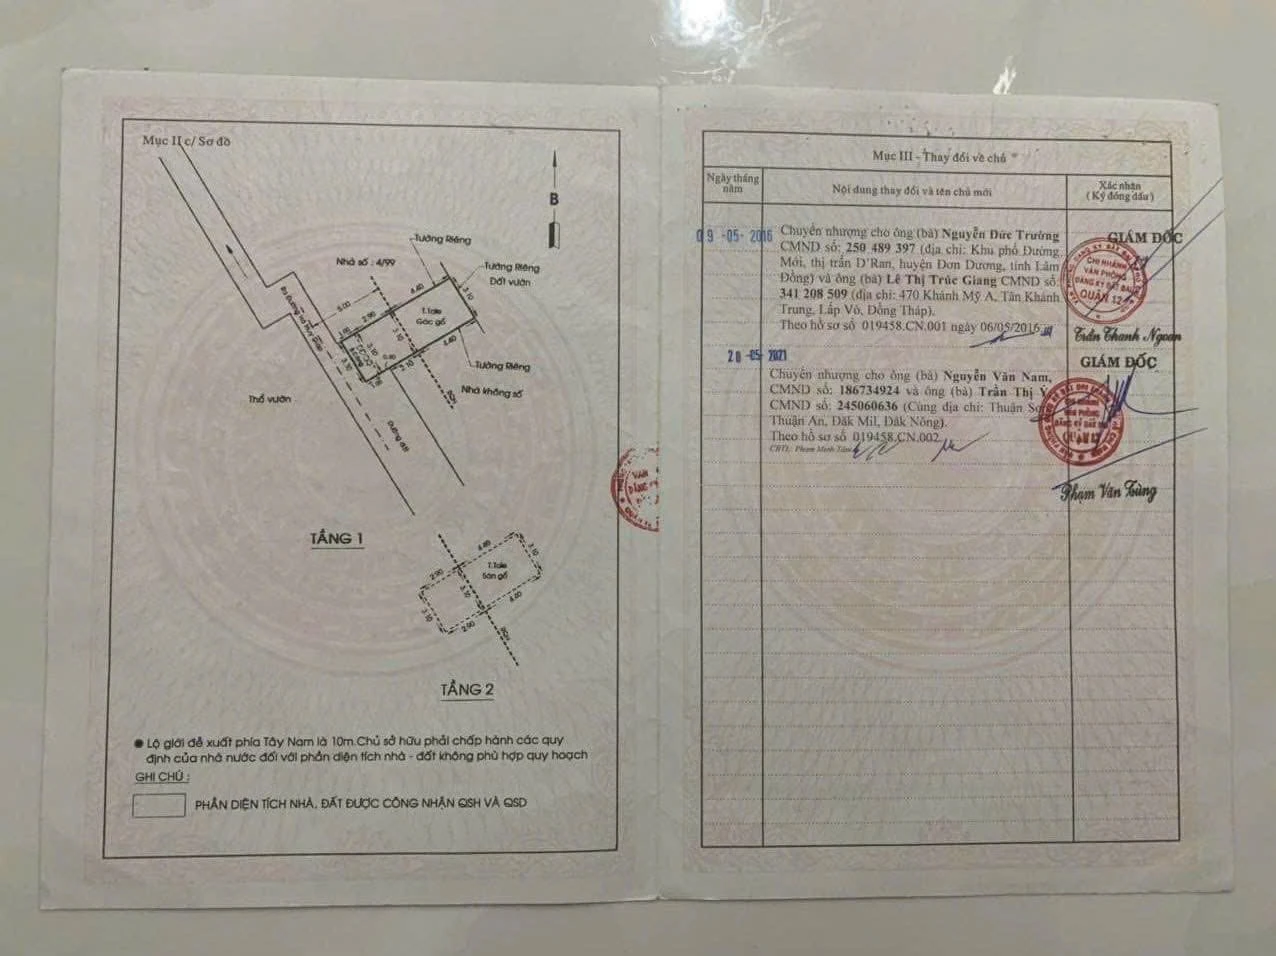 Mục II c/ Sơ đồ
B
Tường Riêng
Nhà số: 4/99
Tường Riêng
Đất vườn
4.40
3.10
5.00
2.90
T.Tole
Gác gỗ
1.00
3.10
3.10
0.80
2.10
4.40
Tường Riêng
Nhà không số
Thổ vườn
Đường đất
TẦNG 1
4.40
3.10
T.Tole
Sàn gỗ
2.90
3.10
3.10
2.90
TẦNG 2
Lộ giới đề xuất phía Tây Nam là 10m.Chủ sở hữu phải chấp hành các quy
định của nhà nước đối với phần diện tích nhà - đất không phù hợp quy hoạch
GHI CHÚ :
PHẦN DIỆN TÍCH NHÀ, ĐẤT ĐƯỢC CÔNG NHẬN QSH VÀ QSD
Mục III - Thay đổi về chủ
Ngày tháng
năm
Nội dung thay đổi và tên chủ mới
Xác nhận
(Ký đóng dấu)
09 -05- 2016
Chuyển nhượng cho ông (bà) Nguyễn Đức Trường
CMND số: 250 489 397 (địa chỉ: Khu phố Đường
Mới, thị trấn D'Ran, huyện Đơn Dương, tỉnh Lâm
Đồng) và ông (bà) Lê Thị Trúc Giang CMND số:
341 208 509 (địa chỉ: 470 Khánh Mỹ A, Tân Khánh
Trung, Lấp Vò, Đồng Tháp).
Theo hồ sơ số 019458.CN.001 ngày 06/05/2016
GIÁM ĐỐC
CHI NHÁNH
VĂN PHÒNG
ĐĂNG KÝ ĐẤT ĐAI
QUẬN 12
Trần Thanh Ngoan
20 -05- 2021
Chuyển nhượng cho ông (bà) Nguyễn Văn Nam,
CMND số: 186734924 và ông (bà) Trần Thị Ý,
CMND số: 245060636 (Cùng địa chỉ: Thuận Sơn,
Thuận An, Đăk Mil, Đăk Nông).
Theo hồ sơ số 019458.CN.002
CBTL: Phạm Minh Tâm
GIÁM ĐỐC
VĂN PHÒNG
ĐĂNG KÝ ĐẤT ĐAI
QUẬN 12
Phạm Văn Tùng